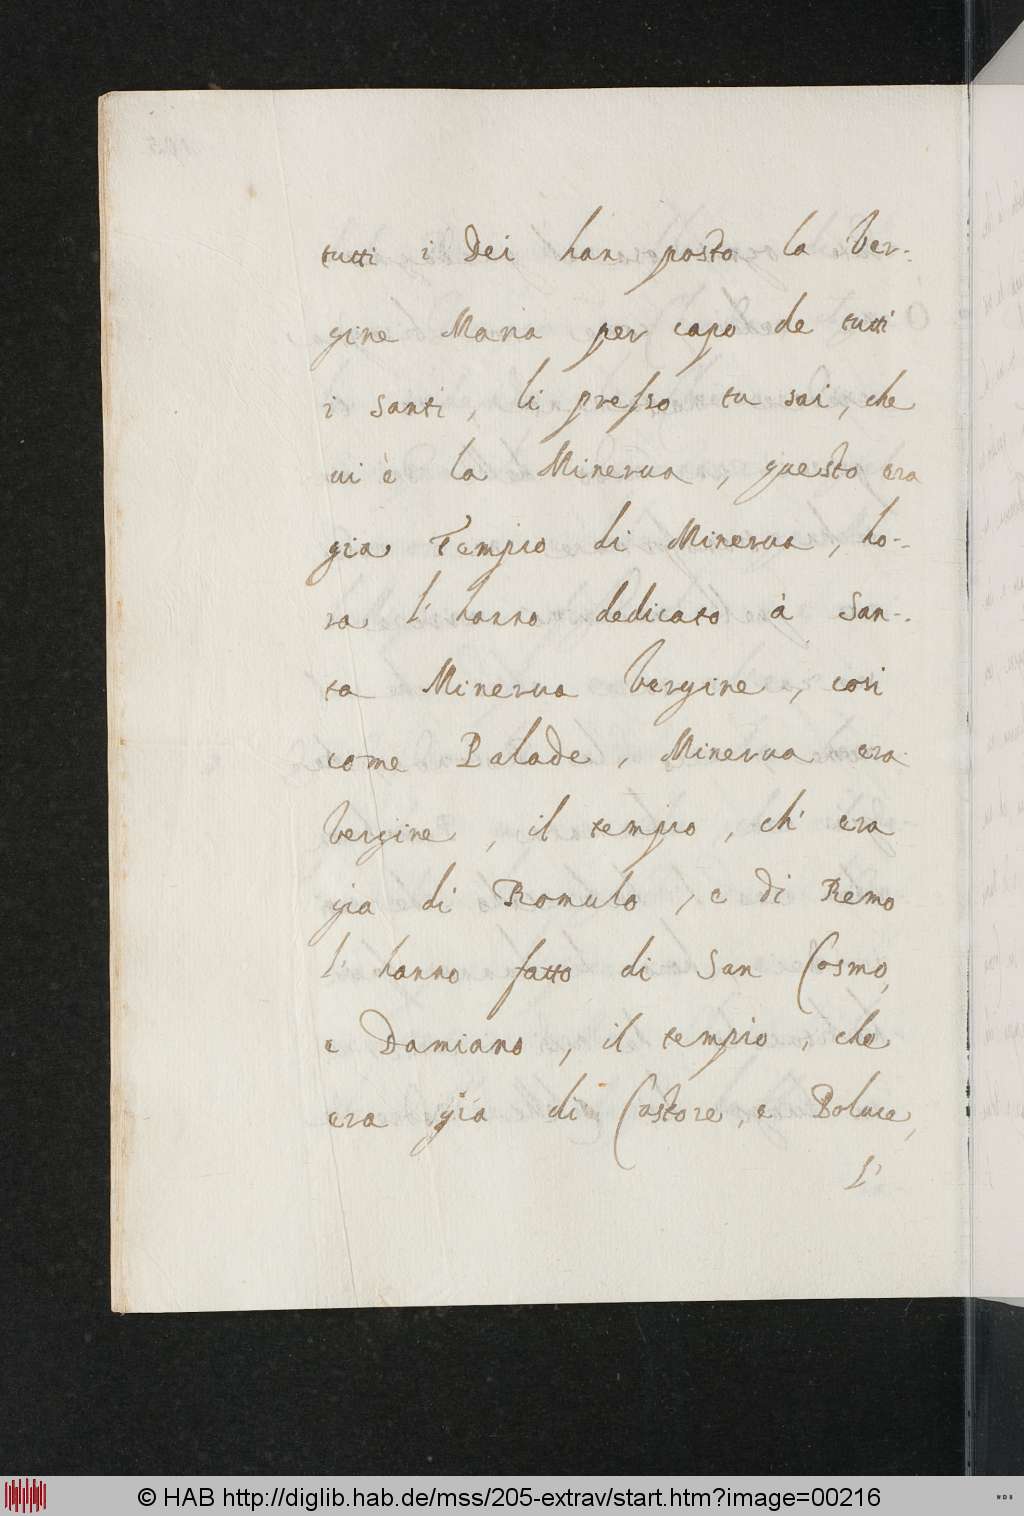 tutti i Dei han posto la Ver-
gine Maria per capo de tutti
i santi, li presso tu sai, che
ui è la Minerua, questo era
gia Tempio di Minerua, ho-
ra l' hanno dedicato à San-
ta Minerua Vergine, cosi
come Palade, Minerua era
Vergine, il tempio, ch' era
gia di Romulo, e di Remo
l' hanno fatto di San Cosmo,
e Damiano, il tempio, che
era già di Castore, e Poluce,
l'
© HAB http://diglib.hab.de/mss/205-extrav/start.htm?image=00216